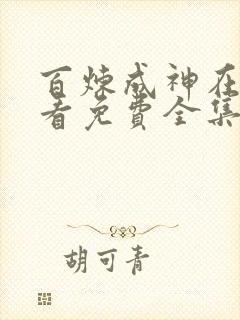 百炼成神在
看免費全集
胡可青